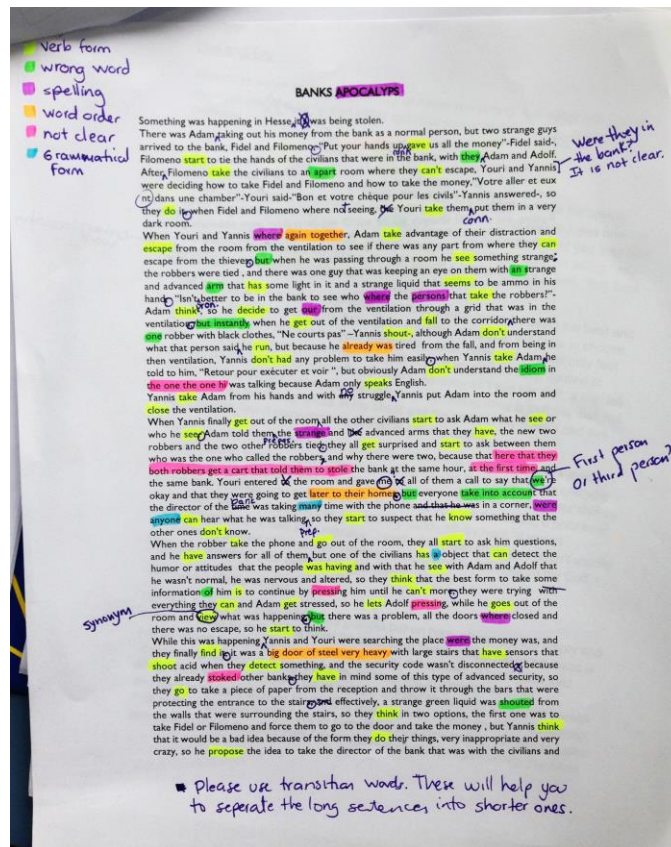 verb form
wrong word
spelling
word order
not clear
Grammatical form
BANKS APOCALYPS
Something was happening in Hesse, it was being stolen.
There was Adam taking out his money from the bank as a normal person, but two strange guys
arrived to the bank, Fidel and Filomeno "Put your hands up gave us all the money"-Fidel said-,
Filomeno start to tie the hands of the civilians that were in the bank, with they Adam and Adolf.
After Filomeno take the civilians to an apart room where they can't escape, Youri and Yannis
were deciding how to take Fidel and Filomeno and how to take the money,"Votre aller et eux
nt dans une chamber"-Youri said-"Bon et votre chèque pour les civils"-Yannis answered-, so
they do it when Fidel and Filomeno where not seeing, Youri take them put them in a very
conn.
dark room.
Were they in the bank? It is not clear.
When Youri and Yannis where again together, Adam take advantage of their distraction and
escape from the room from the ventilation to see if there was any part from where they can
escape from the thieves but when he was passing through a room he see something strange;
the robbers were tied , and there was one guy that was keeping an eye on them with an strange
and advanced arm that has some light in it and a strange liquid that seems to be ammo in his
hand "Isn't better to be in the bank to see who where the persons that take the robbers!"-
pron.
Adam think, so he decide to get our from the ventilation through a grid that was in the
ventilation but instantly, when he get out of the ventilation and fall to the corridor there was
one robber with black clothes, "Ne courts pas" –Yannis shout-, although Adam don't understand
what that person said he run, but because he already was tired from the fall, and from being in
then ventilation, Yannis don't had any problem to take him easily when Yannis take Adam he
told to him, "Retour pour exécuter et voir ", but obviously Adam don't understand the idiom in
the one the one hi was talking because Adam only speaks English.
Yannis take Adam from his hands and with no struggle Yannis put Adam into the room and
close the ventilation.
When Yannis finally get out of the room all the other civilians start to ask Adam what he see or
who he see Adam told them the strange and advanced arms that they have, the new two
prepos.
robbers and the two other robbers tied they all get surprised and start to ask between them
who was the one who called the robbers, and why there were two, because that here that they
both robbers get a cart that told them to stole the bank at the same hour, at the first time, and
the same bank. Youri entered the room and gave me all of them a call to say that we're
First person or third person?
okay and that they were going to get later to their homes but everyone take into account that
bank
the director of the time was taking many time with the phone and that he was in a corner, were
anyone can hear what he was talking, so they start to suspect that he know something that the
prep.
other ones don't know.
When the robber take the phone and go out of the room, they all start to ask him questions,
and he have answers for all of them but one of the civilians has a object that can detect the
humor or attitudes that the people was having and with that he see with Adam and Adolf that
he wasn't normal, he was nervous and altered, so they think that the best form to take some
information of him is to continue by pressing him until he can't more they were trying with
everything they can and Adam get stressed, so he lets Adolf pressing, while he goes out of the
synonym
room and view what was happening but there was a problem, all the doors where closed and
there was no escape, so he start to think.
While this was happening Yannis and Youri were searching the place were the money was, and
they finally find it it was a big door of steel very heavy with large stairs that have sensors that
shoot acid when they detect something, and the security code wasn't disconnected because
they already stoked other banks they have in mind some of this type of advanced security, so
they go to take a piece of paper from the reception and throw it through the bars that were
protecting the entrance to the stairs and effectively, a strange green liquid was shouted from
the walls that were surrounding the stairs, so they think in two options, the first one was to
take Fidel or Filomeno and force them to go to the door and take the money , but Yannis think
that it would be a bad idea because of the form they do their things, very inappropriate and very
crazy, so he propose the idea to take the director of the bank that was with the civilians and
Please use transition words. These will help you
to seperate the long sentences into shorter ones.